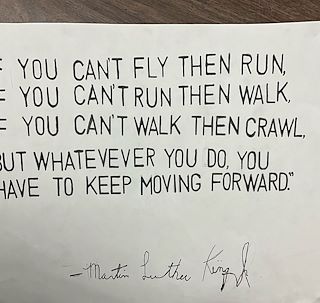 F YOU CAN'T FLY THEN RUN,
F YOU CAN'T RUN THEN WALK,
F YOU CAN'T WALK THEN CRAWL,
BUT WHATEVEVER YOU DO, YOU
HAVE TO KEEP MOVING FORWARD."
- Martin Luther King Jr